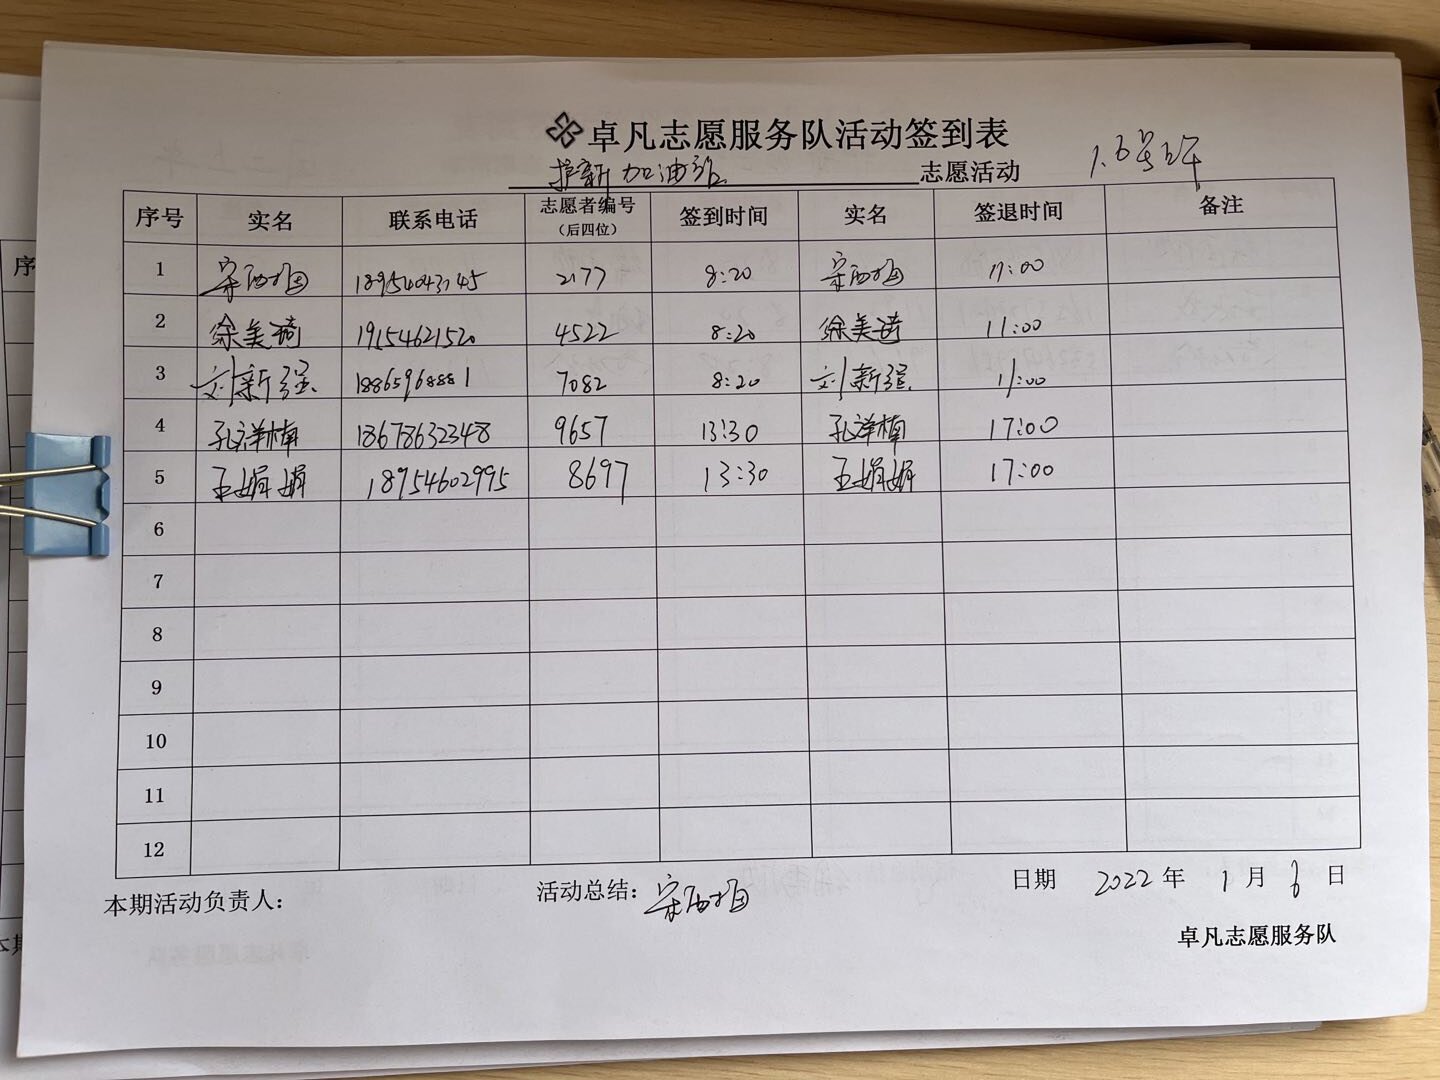 卓凡志愿服务队活动签到表
加油站 志愿活动 1.6号
序号 实名 联系电话 志愿者编号（后四位） 签到时间 实名 签退时间 备注
1 2177 8:20 11:00
2 徐美琦 19154621520 4522 8:20 徐美琦 11:00
3 刘新强 18865968881 7082 8:20 刘新强 11:00
4 孔祥楠 18678632348 9657 13:30 孔祥楠 17:00
5 王娟娟 18954602995 8697 13:30 王娟娟 17:00
6
7
8
9
10
11
12
本期活动负责人： 活动总结： 日期 2022 年 1 月 6 日
卓凡志愿服务队
序
本期